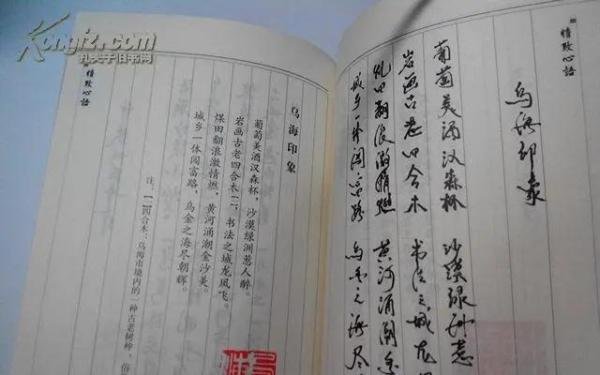 情致心语
乌海印象
葡萄美酒汉森杯 沙漠绿洲惹
岩画古老四合木 书法之城龙
煤田翻浪激情燃 黄河涌潮金
城乡一体闯富路 乌金之海尽
乌海印象
葡萄美酒汉森杯,沙漠绿洲惹人醉。
岩画古老四合木[一],书法之城龙凤飞。
煤田翻浪激情燃,黄河涌潮金沙美。
城乡一体闯富路,乌金之海尽朝辉。
注:[一]四合木:乌海市境内的一种古老树种,俗
情致心语
Kongfz.com
孔夫子旧书网